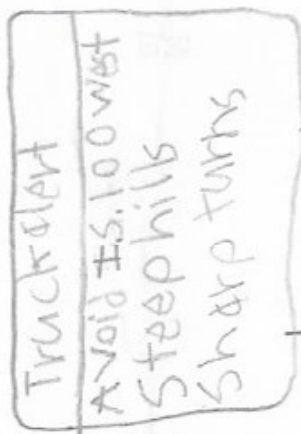 Truck alert
Avoid I.S. 100 west
Steep hills
Sharp turns